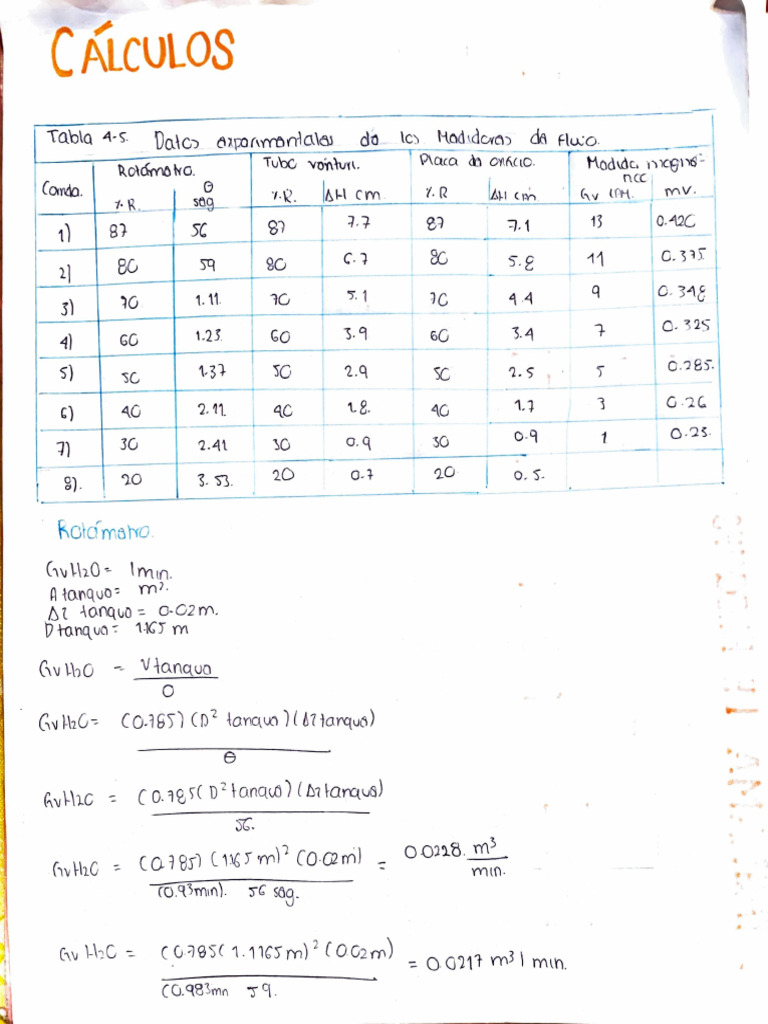 CÁLCULOS
Tabla 4-5. Datos experimentales de los Medidores de Flujo.
Corrida. Rotámetro. Tubo venturi. Placa de orificio. Medida magné-
ncc
%.R. θ seg %.R. ΔH cm %.R ΔH cm Gv LPM. mv.
1) 87 56 87 7.7 87 7.1 13 0.420
2) 80 59 80 6.7 80 5.8 11 0.375
3) 70 1.11 70 5.1 70 4.4 9 0.348
4) 60 1.23 60 3.9 60 3.4 7 0.325
5) 50 1.37 50 2.9 50 2.5 5 0.285.
6) 40 2.11 40 1.8 40 1.7 3 0.26
7) 30 2.41 30 0.9 30 0.9 1 0.23.
8). 20 3.53. 20 0.7 20 0.5.
Rotámetro.
GvH2O = 1min.
Atanque = m².
ΔZ tanque = 0.02m.
Dtanque = 1.165 m
GvH2O = Vtanque
θ
GvH2O = (0.785)(D² tanque)(ΔZ tanque)
θ
GvH2O = (0.785(D² tanque)(ΔZ tanque)
56.
GvH2O = (0.785)(1.165 m)² (0.02m) = 0.0228. m³
min.
(0.93min). 56 seg.
GvH2O = (0.785(1.1165m)² (0.02m) = 0.0217 m³/min.
(0.983mn 59.